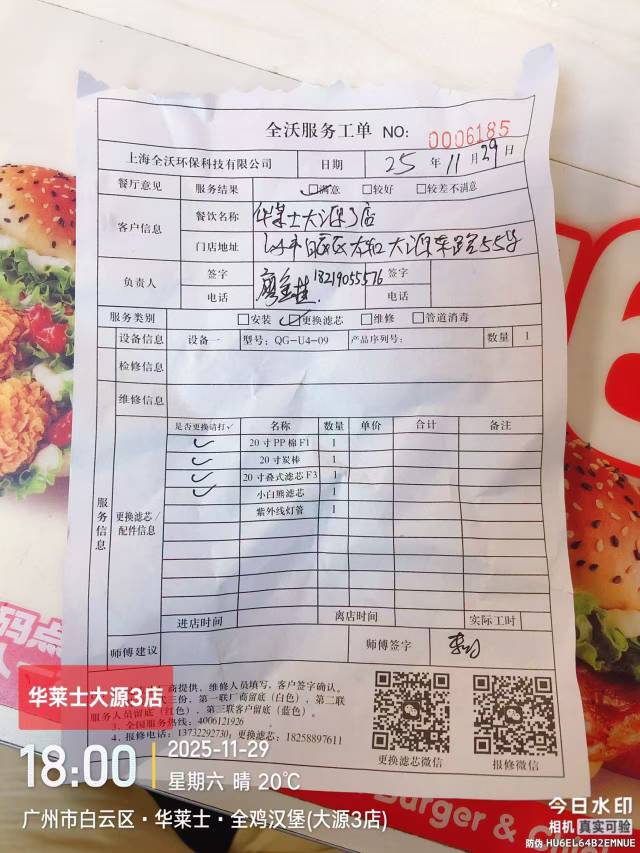 全沃服务工单 NO: 0006185
上海全沃环保科技有限公司 日期 25 年 11 月 29 日
餐厅意见 服务结果 ☑满意 □较好 □较差不满意
客户信息 餐饮名称 华莱士大源3店
门店地址 大源东路55号
负责人 签字 电话 18219055576 签字 电话
服务类别 □安装 ☑更换滤芯 □维修 □管道消毒
设备信息 设备一 型号: QG-U4-09 产品序列号: 数量 1
检修信息
维修信息
服务信息
更换滤芯/配件信息
是否更换请打✓ 名称 数量 单价 合计 备注
✓ 20寸PP棉F1 1
✓ 20寸炭棒 1
✓ 20寸叠式滤芯F3 1
✓ 小白熊滤芯 1
紫外线灯管 1
进店时间 离店时间 实际工时
师傅建议 师傅签字
商提供, 维修人员填写, 客户签字确认。
式三份, 第一联厂商留底 (白色), 第二联
服务人员留底 (红色), 第三联客户留底 (蓝色)。
3、全国服务热线: 4006121926
4、报修电话: 13732292730; 更换滤芯: 18258897611
更换滤芯微信 报修微信
华莱士大源3店
18:00 2025-11-29
星期六 晴 20℃
广州市白云区·华莱士·全鸡汉堡(大源3店)
Burger &
今日水印
相机 真实可验
防伪 HU6EL64B2EMNUE